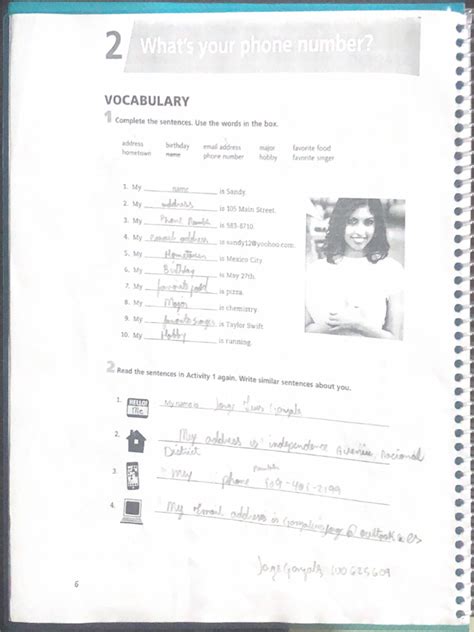 2 What's your phone number?
VOCABULARY
1 Complete the sentences. Use the words in the box.
address birthday email address major favorite food
hometown name phone number hobby favorite singer
1. My name is Sandy.
2. My address is 105 Main Street.
3. My Phone Numbe is 583-8710.
4. My email address is sandy12@yoohoo.com.
5. My Hometown is Mexico City.
6. My Birthday is May 27th.
7. My favorite food is pizza.
8. My Major is chemistry.
9. My favorite singer is Taylor Swift.
10. My Hobby is running.
2 Read the sentences in Activity 1 again. Write similar sentences about you.
1. HELLO! My name is Jorge Gonzale
2. My address is independence Nacional
District
number
3. My phone 809-401-2199
4. My email address is @ outlook . es
Jorge Gonzalez 100625609
6